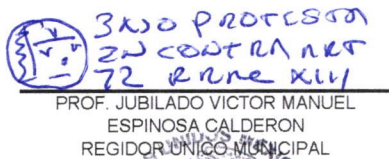 BAJO PROTESTA
EN CONTRA ART
72 
PROF. JUBILADO VICTOR MANUEL
ESPINOSA CALDERON
REGIDOR UNICO MUNICIPAL